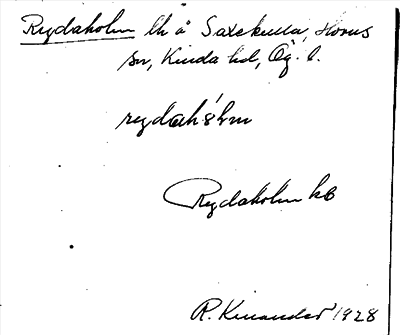 Rydaholm lh å Saxekulla, Horns
sn, Kinda hd, Ög. l.
rydahs̀hm
Rydaholm kb
R. Kinander 1928